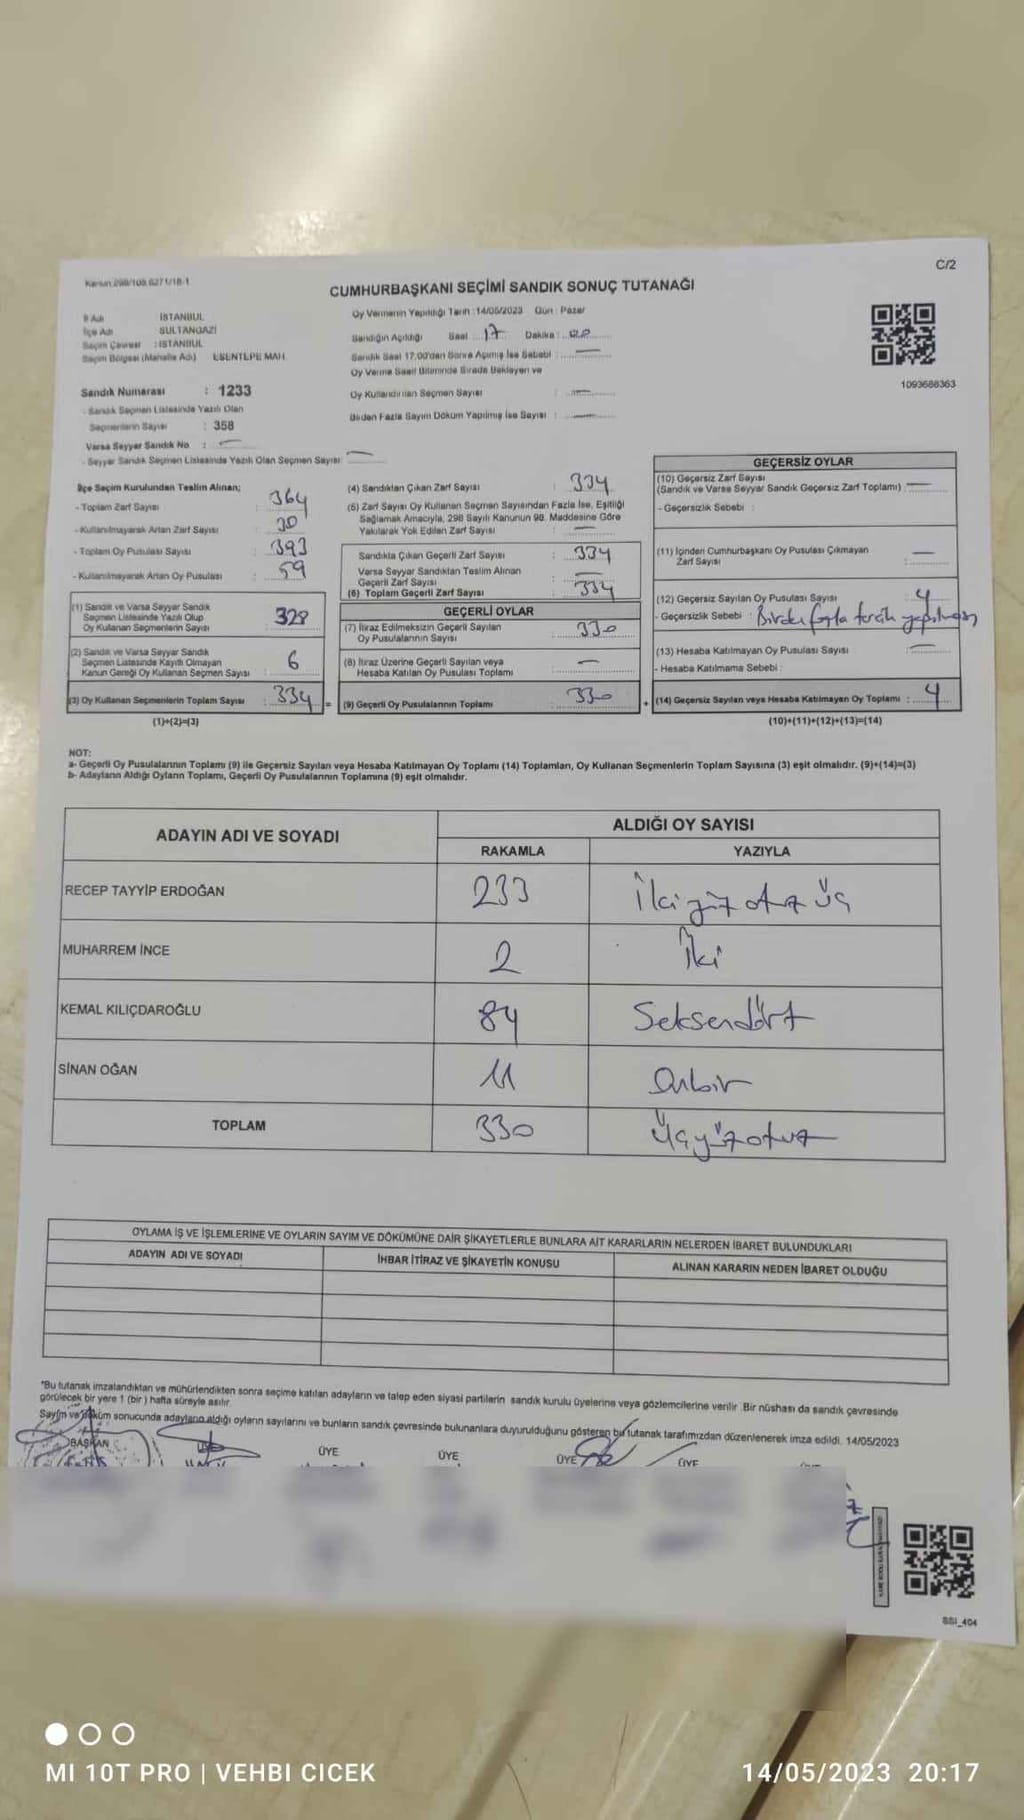 Kanun 298/105,6271/18-1
C/2
CUMHURBAŞKANI SEÇİMİ SANDIK SONUÇ TUTANAĞI
İl Adı : İSTANBUL
İlçe Adı : SULTANGAZİ
Seçim Çevresi : İSTANBUL
Seçim Bölgesi (Mahalle Adı) ESENTEPE MAH.
Sandık Numarası : 1233
- Sandık Seçmen Listesinde Yazılı Olan
Seçmenlerin Sayısı : 358
Varsa Seyyar Sandık No :
- Seyyar Sandık Seçmen Listesinde Yazılı Olan Seçmen Sayısı
Oy Vermenin Yapıldığı Tarih : 14/05/2023 Gün : Pazar
Sandığın Açıldığı Saat : 17 Dakika : 00
Sandık Saat 17.00'dan Sonra Açılmış İse Sebebi :
Oy Verme Saati Bitiminde Sırada Bekleyen ve
Oy Kullandırılan Seçmen Sayısı :
Birden Fazla Sayım Döküm Yapılmış İse Sayısı :
1093686363
İlçe Seçim Kurulundan Teslim Alınan;
- Toplam Zarf Sayısı : 364
- Kullanılmayarak Artan Zarf Sayısı : 30
- Toplam Oy Pusulası Sayısı : 393
- Kullanılmayarak Artan Oy Pusulası : 59
(1) Sandık ve Varsa Seyyar Sandık
Seçmen Listesinde Yazılı Olup
Oy Kullanan Seçmenlerin Sayısı 328
(2) Sandık ve Varsa Seyyar Sandık
Seçmen Listesinde Kayıtlı Olmayan
Kanun Gereği Oy Kullanan Seçmen Sayısı 6
(3) Oy Kullanan Seçmenlerin Toplam Sayısı : 334 =
(1)+(2)=(3)
(4) Sandıktan Çıkan Zarf Sayısı : 334
(5) Zarf Sayısı Oy Kullanan Seçmen Sayısından Fazla İse, Eşitliği
Sağlamak Amacıyla, 298 Sayılı Kanunun 98. Maddesine Göre
Yakılarak Yok Edilen Zarf Sayısı :
Sandıkla Çıkan Geçerli Zarf Sayısı : 334
Varsa Seyyar Sandıktan Teslim Alınan
Geçerli Zarf Sayısı :
(6) Toplam Geçerli Zarf Sayısı : 334
GEÇERLİ OYLAR
(7) İtiraz Edilmeksizin Geçerli Sayılan
Oy Pusulalarının Sayısı : 330
(8) İtiraz Üzerine Geçerli Sayılan veya
Hesaba Katılan Oy Pusulası Toplamı :
(9) Geçerli Oy Pusulalarının Toplamı : 330 +
GEÇERSİZ OYLAR
(10) Geçersiz Zarf Sayısı
(Sandık ve Varsa Seyyar Sandık Geçersiz Zarf Toplamı) :
- Geçersizlik Sebebi :
(11) İçinden Cumhurbaşkanı Oy Pusulası Çıkmayan
Zarf Sayısı :
(12) Geçersiz Sayılan Oy Pusulası Sayısı : 4
- Geçersizlik Sebebi : Birden fazla tercih yapılması
(13) Hesaba Katılmayan Oy Pusulası Sayısı :
- Hesaba Katılmama Sebebi :
(14) Geçersiz Sayılan veya Hesaba Katılmayan Oy Toplamı : 4
(10)+(11)+(12)+(13)=(14)
NOT:
a- Geçerli Oy Pusulalarının Toplamı (9) ile Geçersiz Sayılan veya Hesaba Katılmayan Oy Toplamı (14) Toplamları, Oy Kullanan Seçmenlerin Toplam Sayısına (3) eşit olmalıdır. (9)+(14)=(3)
b- Adayların Aldığı Oyların Toplamı, Geçerli Oy Pusulalarının Toplamına (9) eşit olmalıdır.
ADAYIN ADI VE SOYADI
ALDIĞI OY SAYISI
RAKAMLA YAZIYLA
RECEP TAYYİP ERDOĞAN 233 İkiyüz otuz üç
MUHARREM İNCE 2 İki
KEMAL KILIÇDAROĞLU 84 Seksendört
SİNAN OĞAN 11 Onbir
TOPLAM 330 Üçyüzotuz
OYLAMA İŞ VE İŞLEMLERİNE VE OYLARIN SAYIM VE DÖKÜMÜNE DAİR ŞİKAYETLERLE BUNLARA AİT KARARLARIN NELERDEN İBARET BULUNDUKLARI
ADAYIN ADI VE SOYADI İHBAR İTİRAZ VE ŞİKAYETİN KONUSU ALINAN KARARIN NEDEN İBARET OLDUĞU
*Bu tutanak imzalandıktan ve mühürlendikten sonra seçime katılan adayların ve talep eden siyasi partilerin sandık kurulu üyelerine veya gözlemcilerine verilir. Bir nüshası da sandık çevresinde
görülecek bir yere 1 (bir) hafta süreyle asılır.
Sayım ve döküm sonucunda adayların aldığı oyların sayılarını ve bunların sandık çevresinde bulunanlara duyurulduğunu gösteren bu tutanak tarafımızdan düzenlenerek imza edildi. 14/05/2023
BAŞKAN ÜYE ÜYE ÜYE ÜYE ÜYE
SSI_404
MI 10T PRO | VEHBI CICEK
14/05/2023 20:17